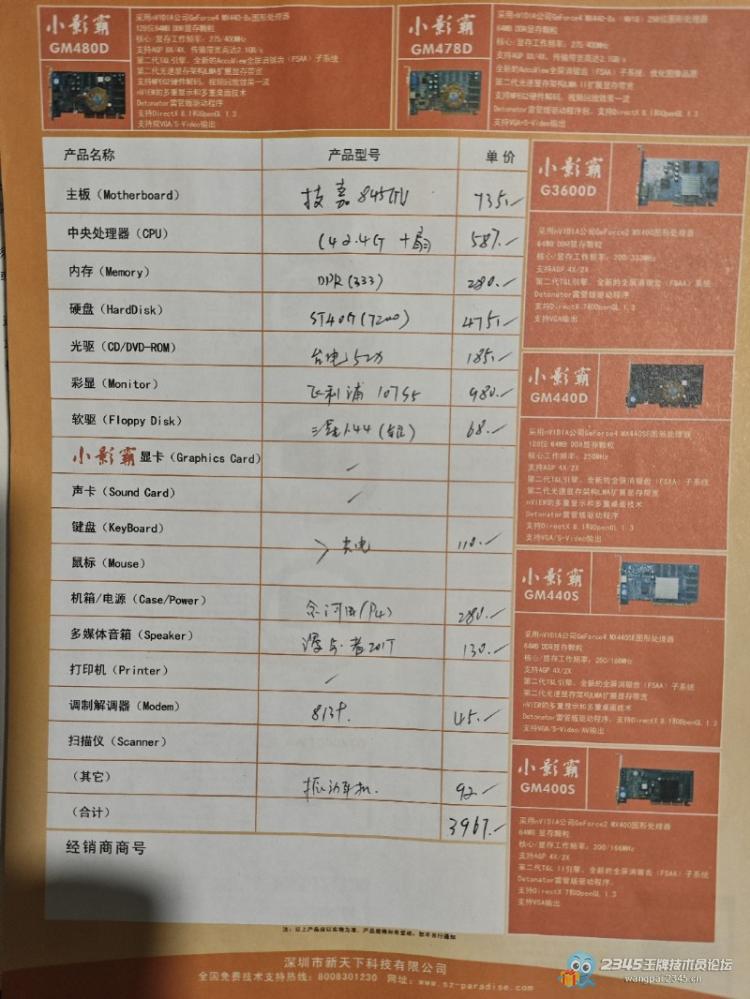 小影霸
GM480D
采用nVIDIA公司GeForce4 MX440-8X图形处理器
128位64MB DDR显存颗粒
核心/显存工作频率：275/400MHZ
支持AGP 8X/4X，传输带宽高达2.1GB/s
第二代T&L引擎、全新的AccuView全屏消锯齿（FSAA）子系统
第二代光速显存架构LMA扩展显存带宽
支持MPEG2硬件解码，视频回放效果一流
nVIEW的多重显示和多重桌面技术
Detonator雷管版驱动程序
支持DirectX 8.1和OpenGL 1.3
支持双VGA/S-Video输出
小影霸
GM478D
64MB DDR显存颗粒
核心/显存工作频率：275/400MHZ
支持AGP 8X/4X，传输带宽高达2.1GB/s
全新的AccuView全屏消锯齿（FSAA）子系统，优化图像品质
第二代光速显存架构LMA II扩展显存带宽
支持MPEG2硬件解码，视频回放效果一流
Detonator雷管版驱动程序
支持DirectX 8.1和OpenGL 1.3
支持VGA+S-Video输出
产品名称 产品型号 单价
主板（Motherboard） 技嘉 735.
中央处理器（CPU） C4 2.4G +扇 587.
内存（Memory） DDR(333) 280.
硬盘（HardDisk） ST40G(7200) 475.
光驱（CD/DVD-ROM） 台电52X 185.
彩显（Monitor） 飞利浦 107S5 980.
软驱（Floppy Disk） 三星1.44 68.
小影霸 显卡（Graphics Card） /
声卡（Sound Card） /
键盘（KeyBoard）
鼠标（Mouse） 110.
机箱/电源（Case/Power） 金河田(P4) 280.
多媒体音箱（Speaker） 201T 130.
打印机（Printer） /
调制解调器（Modem） 45.
扫描仪（Scanner）
（其它） 振动手机 92.
（合计） 3967.
经销商商号
小影霸
G3600D
采用nVIDIA公司GeForce2 MX400图形处理器
64MB DDR显存颗粒
核心/显存工作频率：200/333MHZ
支持AGP 4X/2X
第二代T&L引擎、全新的全屏消锯齿（FSAA）子系统
Detonator雷管版驱动程序
支持DirectX 7和OpenGL 1.3
支持VGA输出
小影霸
GM440D
采用nVIDIA公司GeForce4 MX440SE图形处理器
128位 64MB DDR显存颗粒
核心工作频率：250MHz
支持AGP 4X/2X
第二代T&L引擎、全新的全屏消锯齿（FSAA）子系统
第二代光速显存架构LMA扩展显存带宽
nVIEW的多重显示和多重桌面技术
Detonator雷管版驱动程序
支持DirectX 8.1和OpenGL 1.3
支持VGA/S-Video输出
小影霸
GM440S
采用nVIDIA公司GeForce4 MX440SE图形处理器
64MB DDR显存颗粒
核心/显存工作频率：250/166MHZ
支持AGP 4X/2X
第二代T&L引擎、全新的全屏消锯齿（FSAA）子系统
第二代光速显存架构LMA扩展显存带宽
nVIEW的多重显示和多重桌面技术
Detonator雷管版驱动程序，支持DirectX 8.1和OpenGL 1.3
支持VGA/S-Video/AV输出
小影霸
GM400S
采用nVIDIA公司GeForce2 MX400图形处理器
64MB 显存颗粒
核心/显存工作频率：200/166MHZ
支持AGP 4X/2X
第二代T&L II引擎、全新的全屏消锯齿（FSAA）子系统
Detonator雷管版驱动程序，
支持DirectX 7和OpenGL 1.3
支持VGA输出
注：以上产品由以实物为准，产品规格如有变动，恕不另行通知
深圳市新天下科技有限公司
全国免费技术支持热线：8008301230 网址：www.sz-paradise.com
2345王牌技术员论坛
wangpai.2345.cn